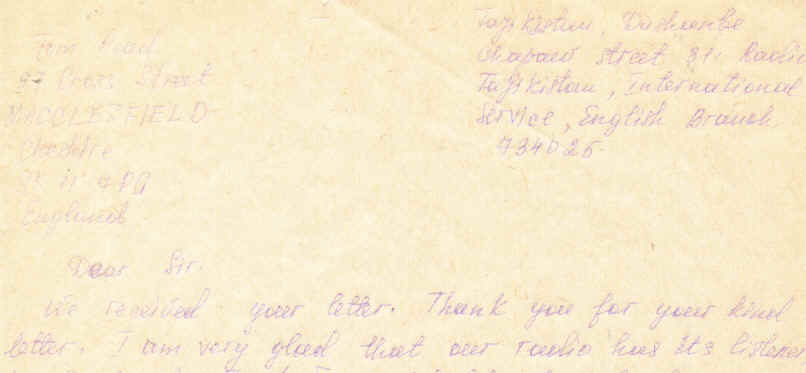 Tajikistan, Dushanbe
Chapaev street 31. Radio
Tajikistan, International
Service, English Branch
734025.
Tim
Street
MACCLESFIELD
Cheshire
England
Dear Sir.
We received your letter. Thank you for your kind
letter. I am very glad that our radio has its listener